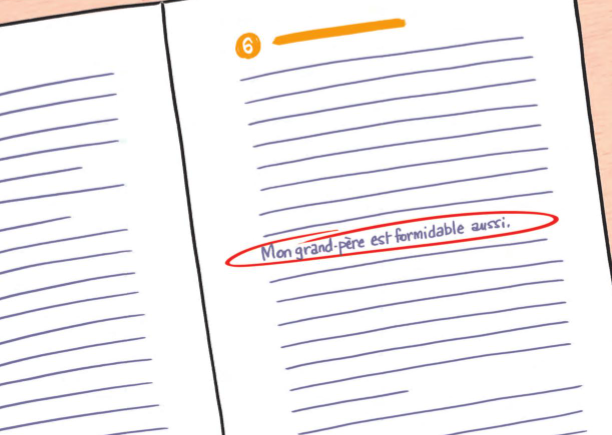 6
Mon grand-père est formidable aussi.